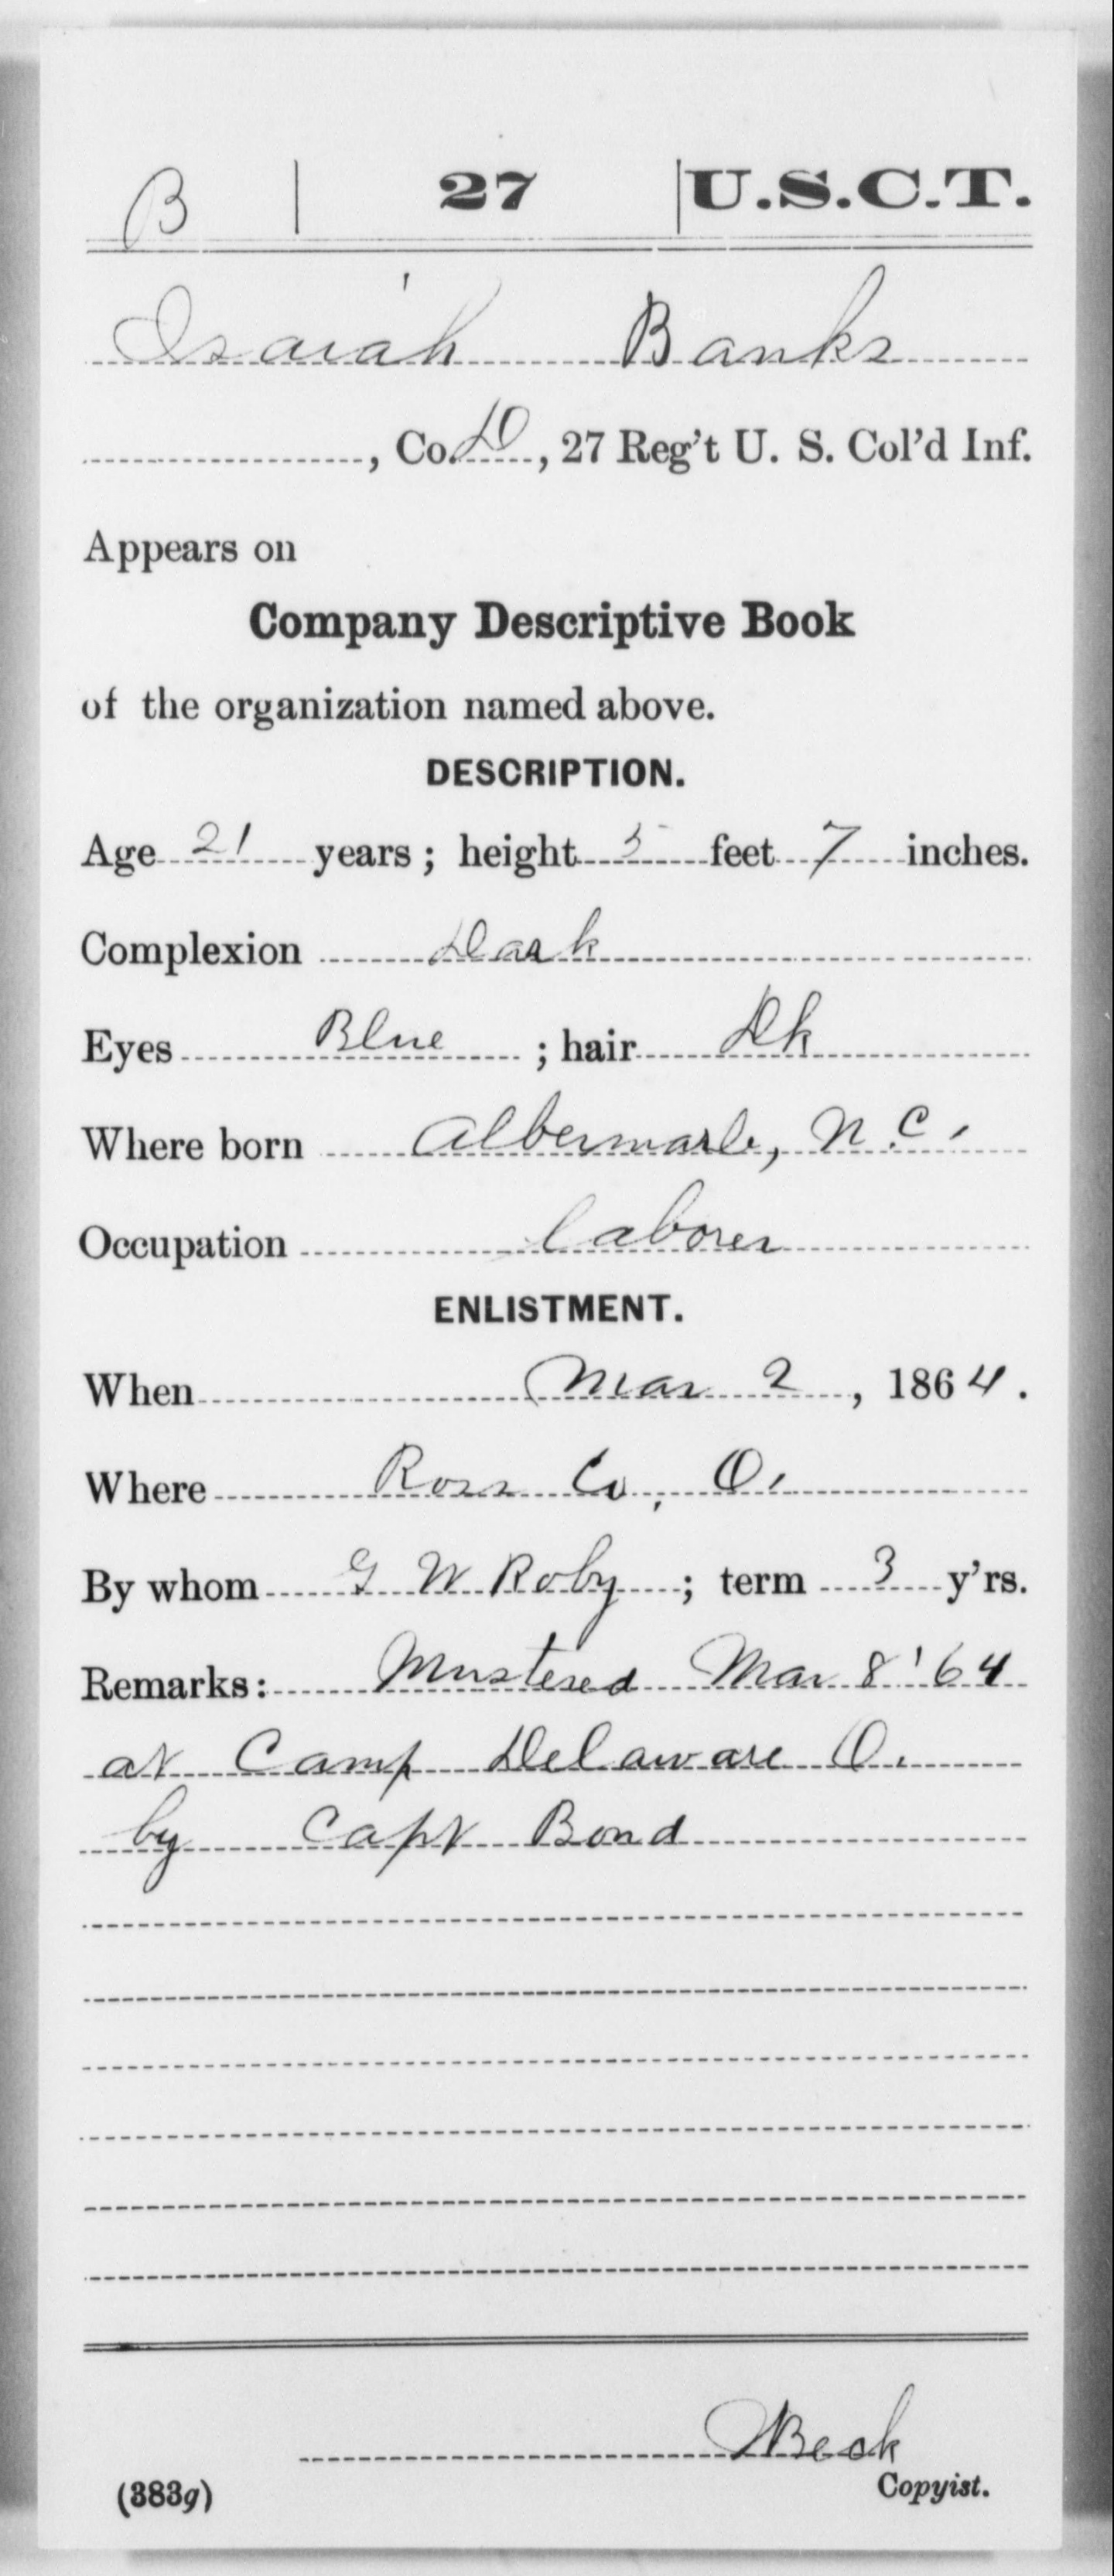 B | 27 | U.S.C.T.
Isaiah Banks
, Co. D, 27 Reg't U. S. Col'd Inf.
Appears on
Company Descriptive Book
of the organization named above.
DESCRIPTION.
Age 21 years; height 5 feet 7 inches.
Complexion Dark
Eyes Blue ; hair Dk
Where born Albermarle, N.C.
Occupation laborer
ENLISTMENT.
When Mar 2, 1864.
Where Ross Co, O.
By whom G W Roby; term 3 y'rs.
Remarks: Mustered Mar 8 '64
at Camp Delaware O.
by Capt Bond
Beck
(383g) Copyist.